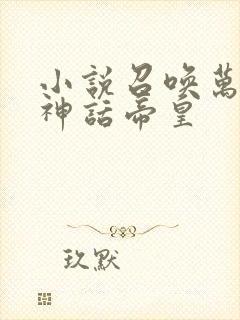 小說召喚萬
神話帝皇
玖默